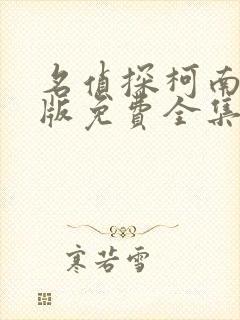 名侦探柯南
版免费全集
寒若雪